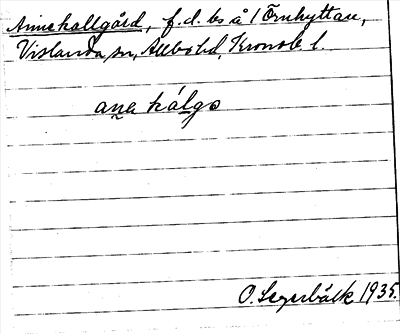 Annekallgård, f.d. bs å 1 Örnhyttan,
Vislanda sn, Allbo hd, Kronob. l.
ane kálgo
O. Segerbäck 1935.